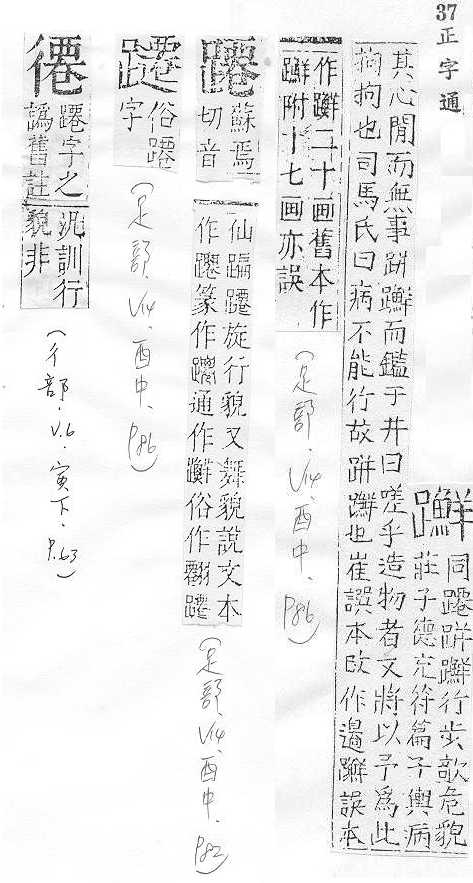 37 正字通
𨇤
同躚跰𨇤行步欹危貌
莊子德充符篇子輿病
其心閒而無事跰𨇤而鑑于井曰嗟乎造物者又將以予爲此
拘拘也司馬氏曰病不能行故跰𨇤也崔譔本改作邉𨇤誤本
作𨇤二十画舊本作
𨇤附十七画亦誤
(足部、V14、酉中、P86)
躚
蘇焉
切音
仙蹁躚旋行貌又舞貌說文本
作躚篆作 通作𨇤俗作
(足部、V14、酉中、P82)
俗躚
字
(足部、V14、酉中、P86)
僊
躚字之
譌舊註
汎訓行
貌非
(彳部、V.6、寅下、P.63)